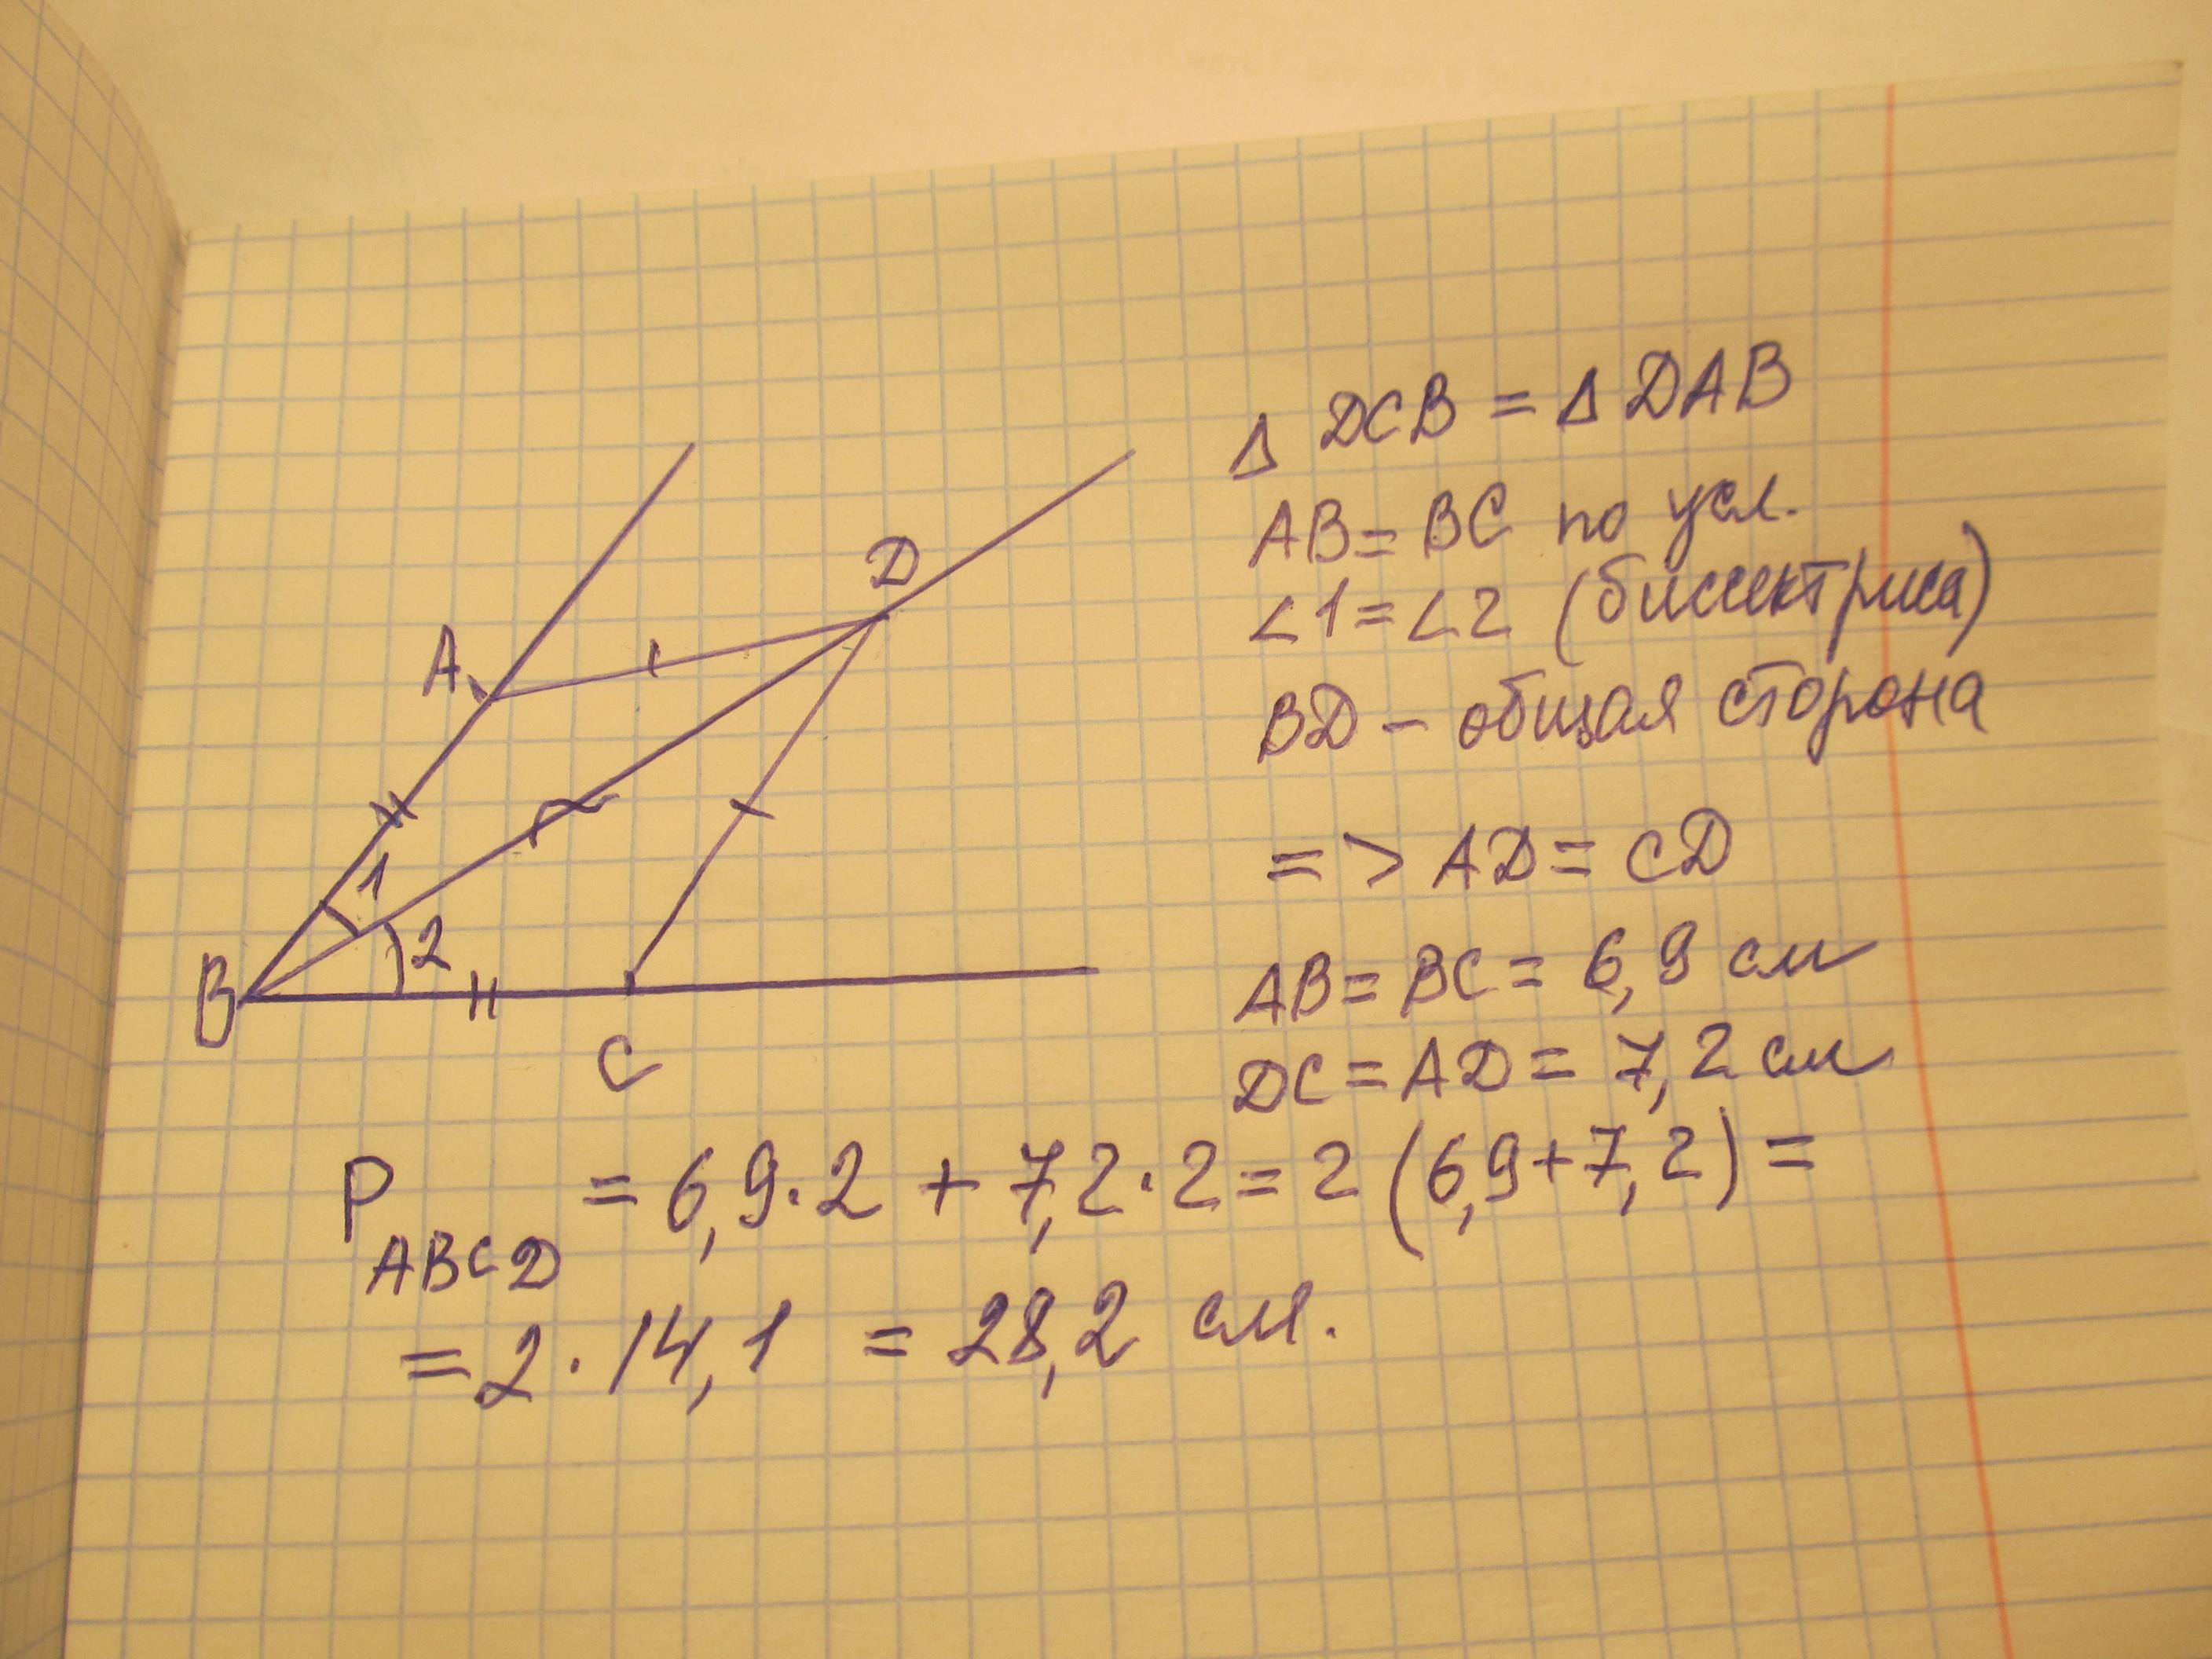 Δ DCB = Δ DAB
AB = BC по усл.
∠1 = ∠2 (биссектриса)
BD - общая сторона
=> AD = CD
AB = BC = 6,9 см
DC = AD = 7,2 см
A
D
1
2
B
C
P ABCD = 6,9·2 + 7,2·2 = 2 (6,9+7,2) =
= 2 · 14,1 = 28,2 см.